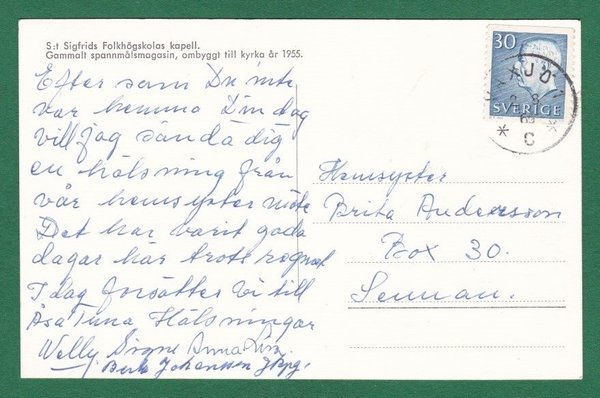 S:t Sigfrids Folkhögskolas kapell.
Gammalt spannmålsmagasin, ombyggt till kyrka år 1955.
Efter som Du inte
var hemma Din dag
vill jag sända dig
en hälsning från
vår hemsyster möte
Det har varit goda
dagar här trots regnat
I dag forsätter vi till
Åsa Tuna Hälsningar
Welly Signe Anna Lisa
Berta Johansson
30
SVERIGE
VÄXJÖ
C
Hemsyster
Brita Andersson
Box 30.
Sennan.